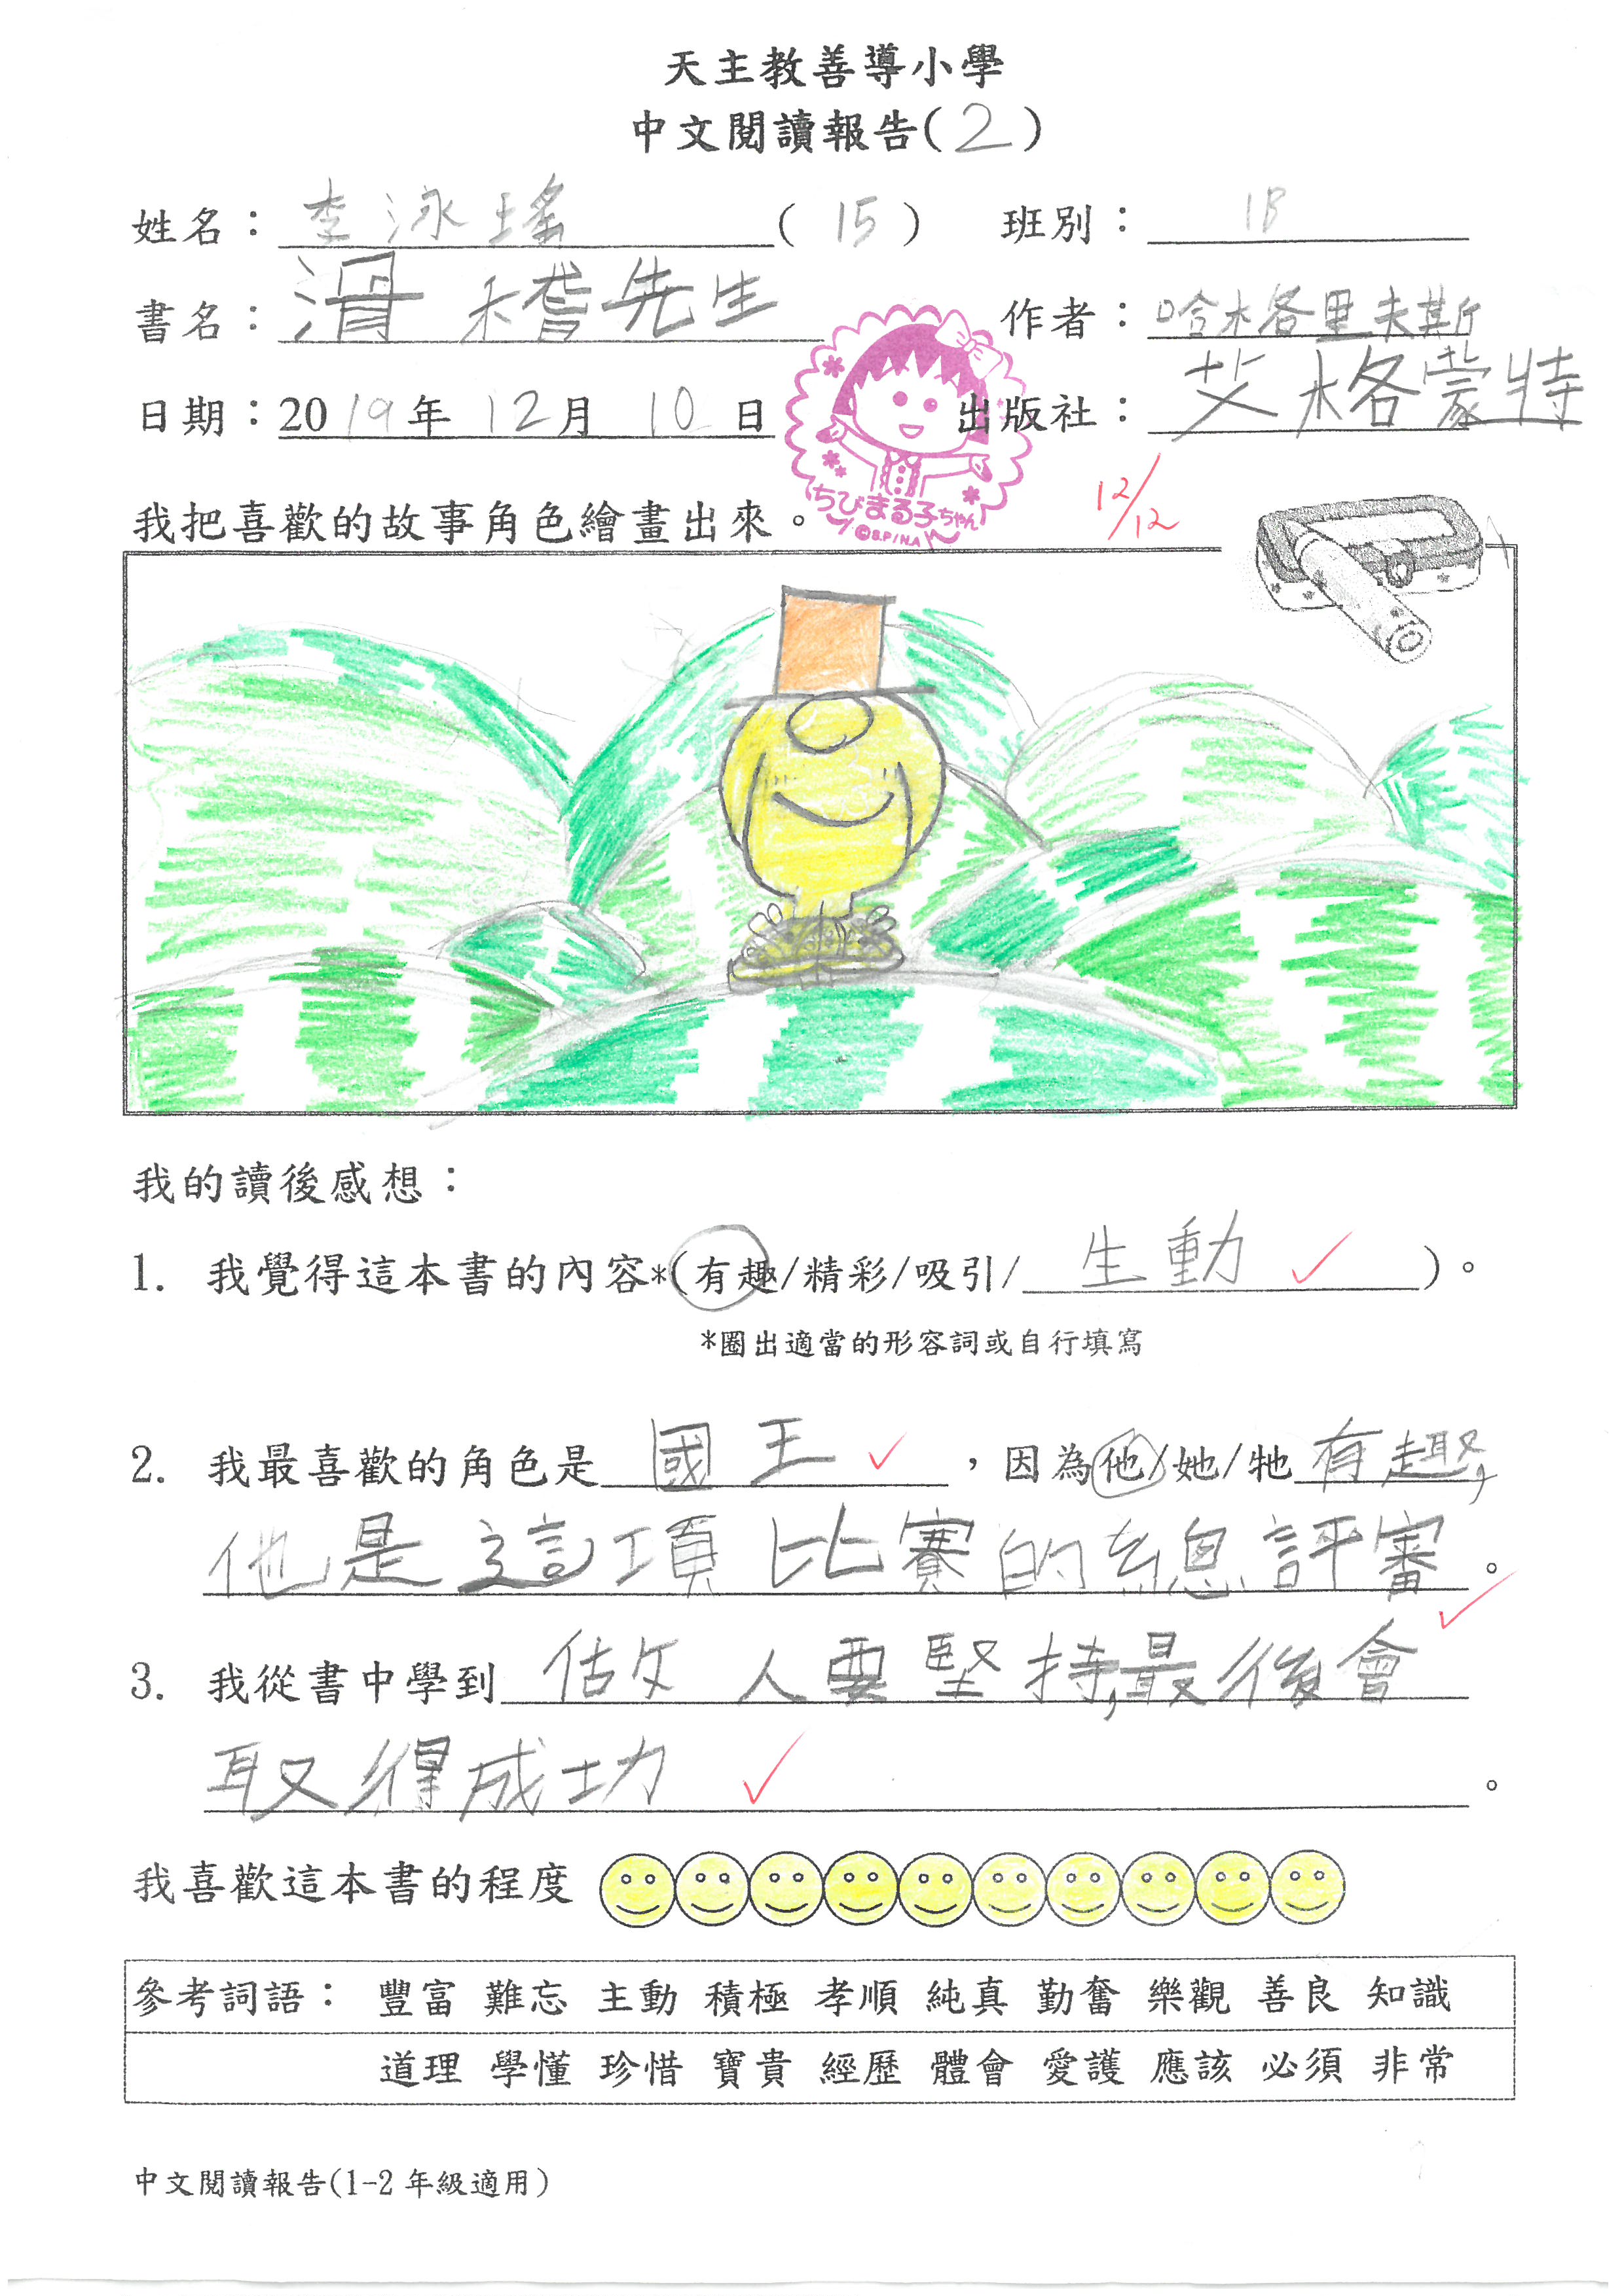 天主教善導小學
中文閱讀報告(2)
姓名：李泳瑤(15) 班別：1B
書名：滑稽先生 作者：哈木各里夫斯
日期：2019年12月10日 出版社：艾格蒙特
ちびまる子ちゃん
©S.P/N.A
12/12
我把喜歡的故事角色繪畫出來。
我的讀後感想：
1. 我覺得這本書的內容*(有趣/精彩/吸引/生動)。
*圈出適當的形容詞或自行填寫
2. 我最喜歡的角色是國王，因為他/她/牠有趣，
他是這項比賽的總評審。
3. 我從書中學到做人要堅持,最後會
取得成功。
我喜歡這本書的程度
參考詞語： 豐富 難忘 主動 積極 孝順 純真 勤奮 樂觀 善良 知識
道理 學懂 珍惜 寶貴 經歷 體會 愛護 應該 必須 非常
中文閱讀報告(1-2年級適用)